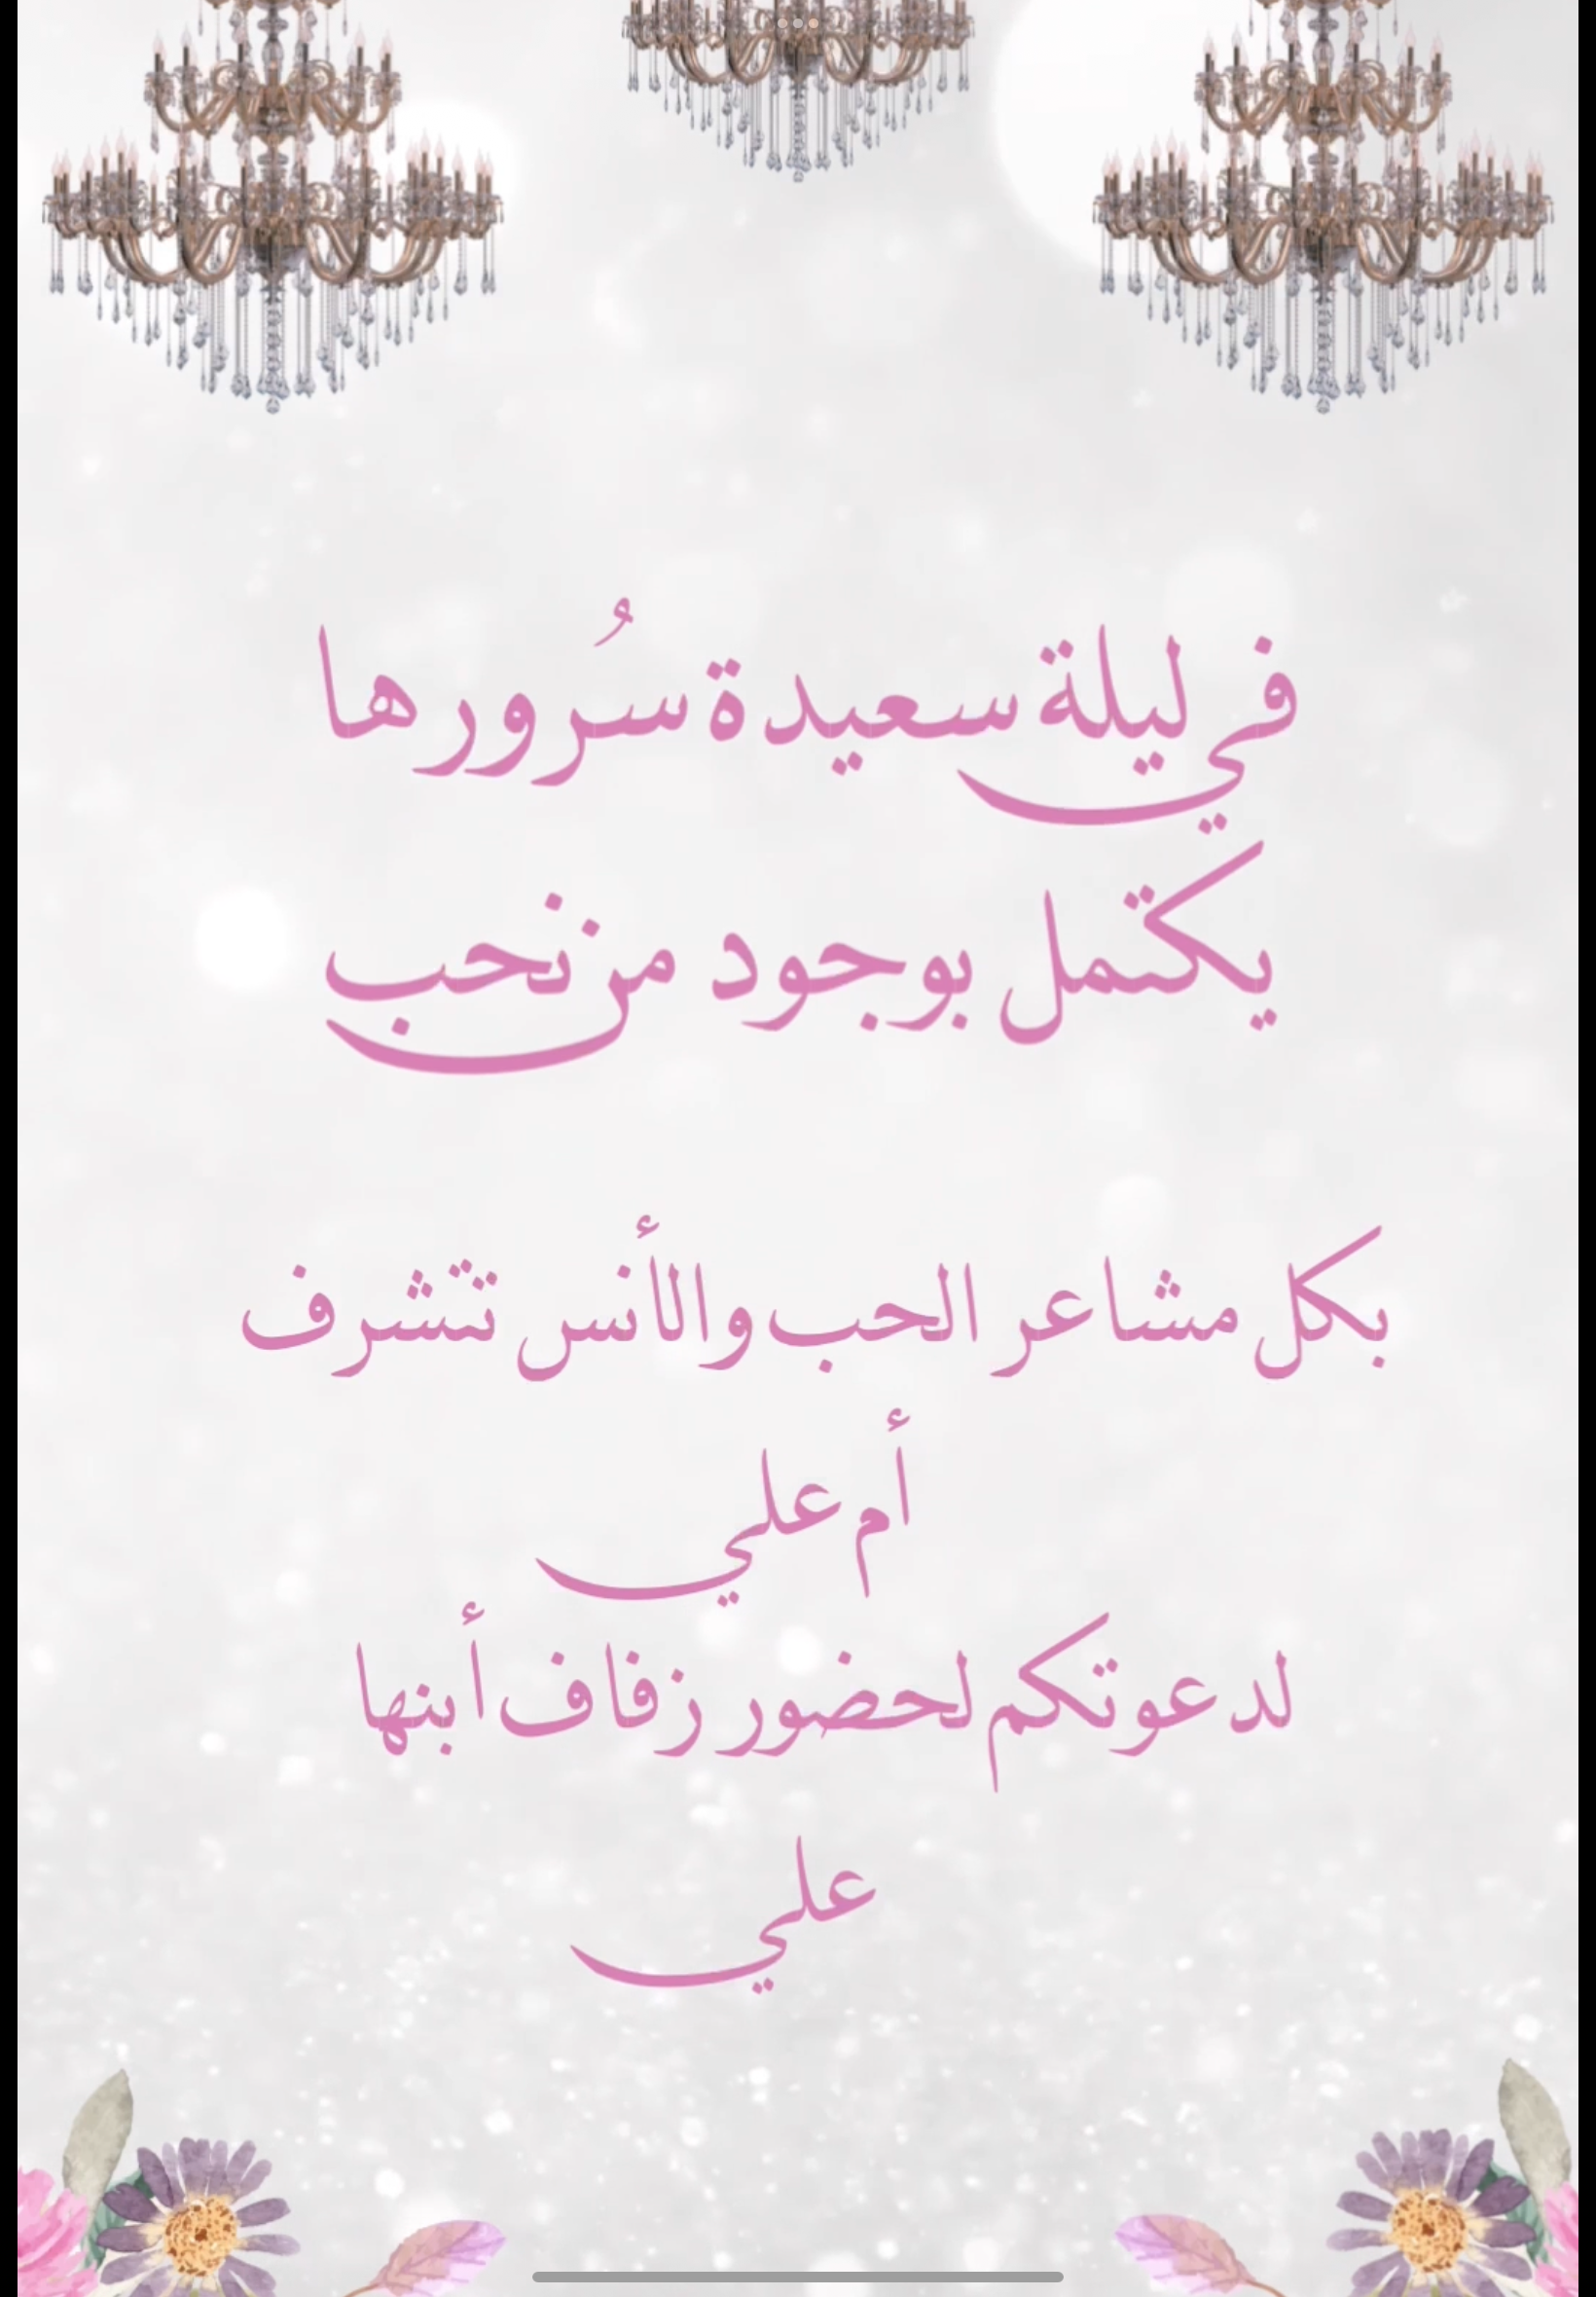 في ليلة سعيدة سُرورها
يكتمل بوجود من نحب
بكل مشاعر الحب والأنس تتشرف
أم علي
لدعوتكم لحضور زفاف أبنها
علي